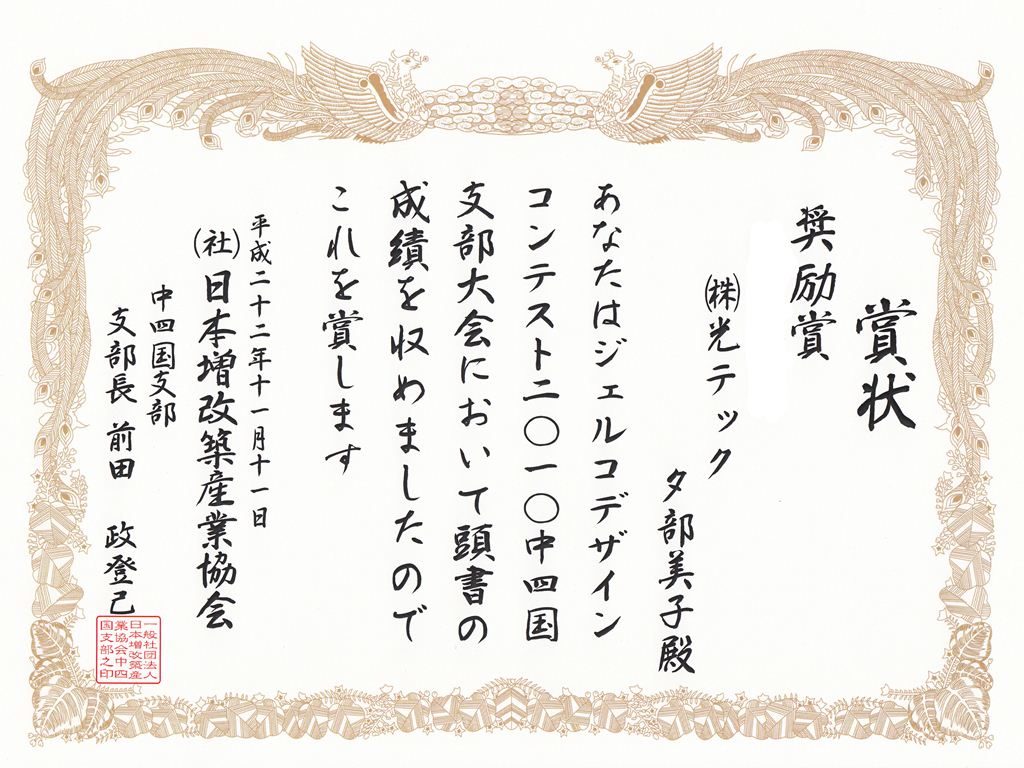 賞状
奨励賞
㈱光テック
夕部美子殿
あなたはジェルコデザイン
コンテスト二〇一〇中四国
支部大会において頭書の
成績を収めましたので
これを賞します
平成二十二年十一月十一日
(社)日本増改築産業協会
中四国支部
支部長 前田 政登己
一般社団法人
日本増改築産
業協会中四
国支部之印